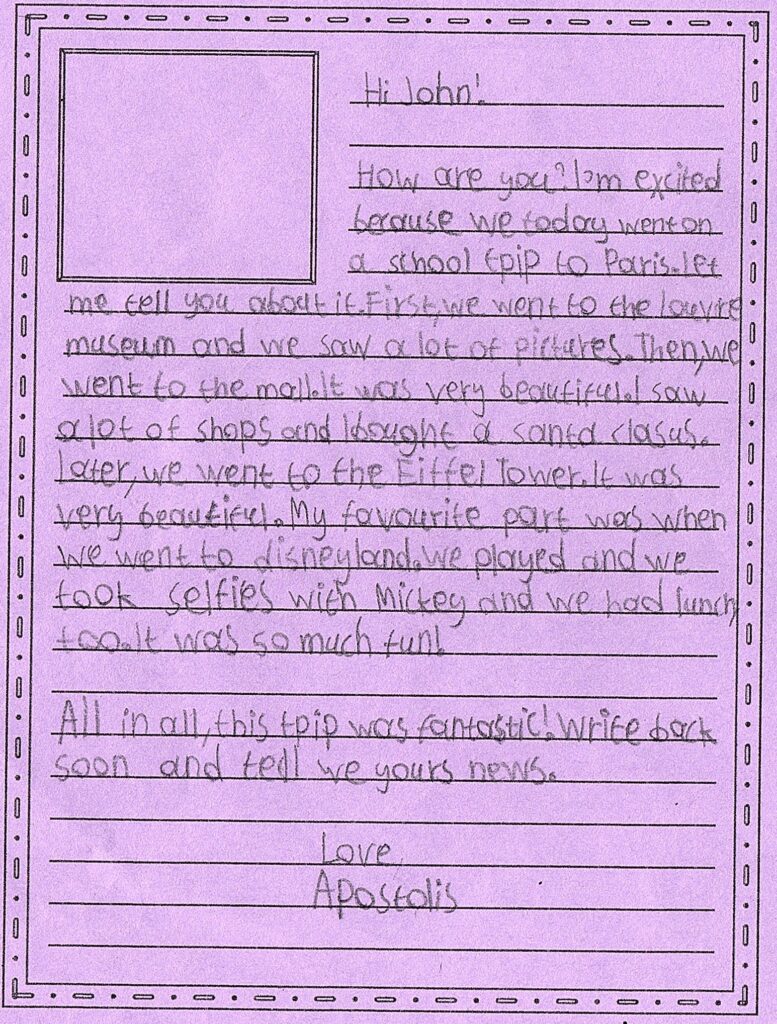 Hi John!
How are you? I'm excited
because we today went on
a school tpip to Paris. Let
me tell you about it. First, we went to the louvre
museum and we saw a lot of pictures. Then, we
went to the mall. It was very beautiful. I saw
a lot of shops and I bought a santa clasus.
Later, we went to the Eiffel Tower. It was
very beautiful. My favourite part was when
we went to disneyland. We played and we
took selfies with Mickey and we had lunch
too. It was so much fun!
All in all, this tpip was fantastic! Write back
soon and tell we yours news.
Love,
Apostolis